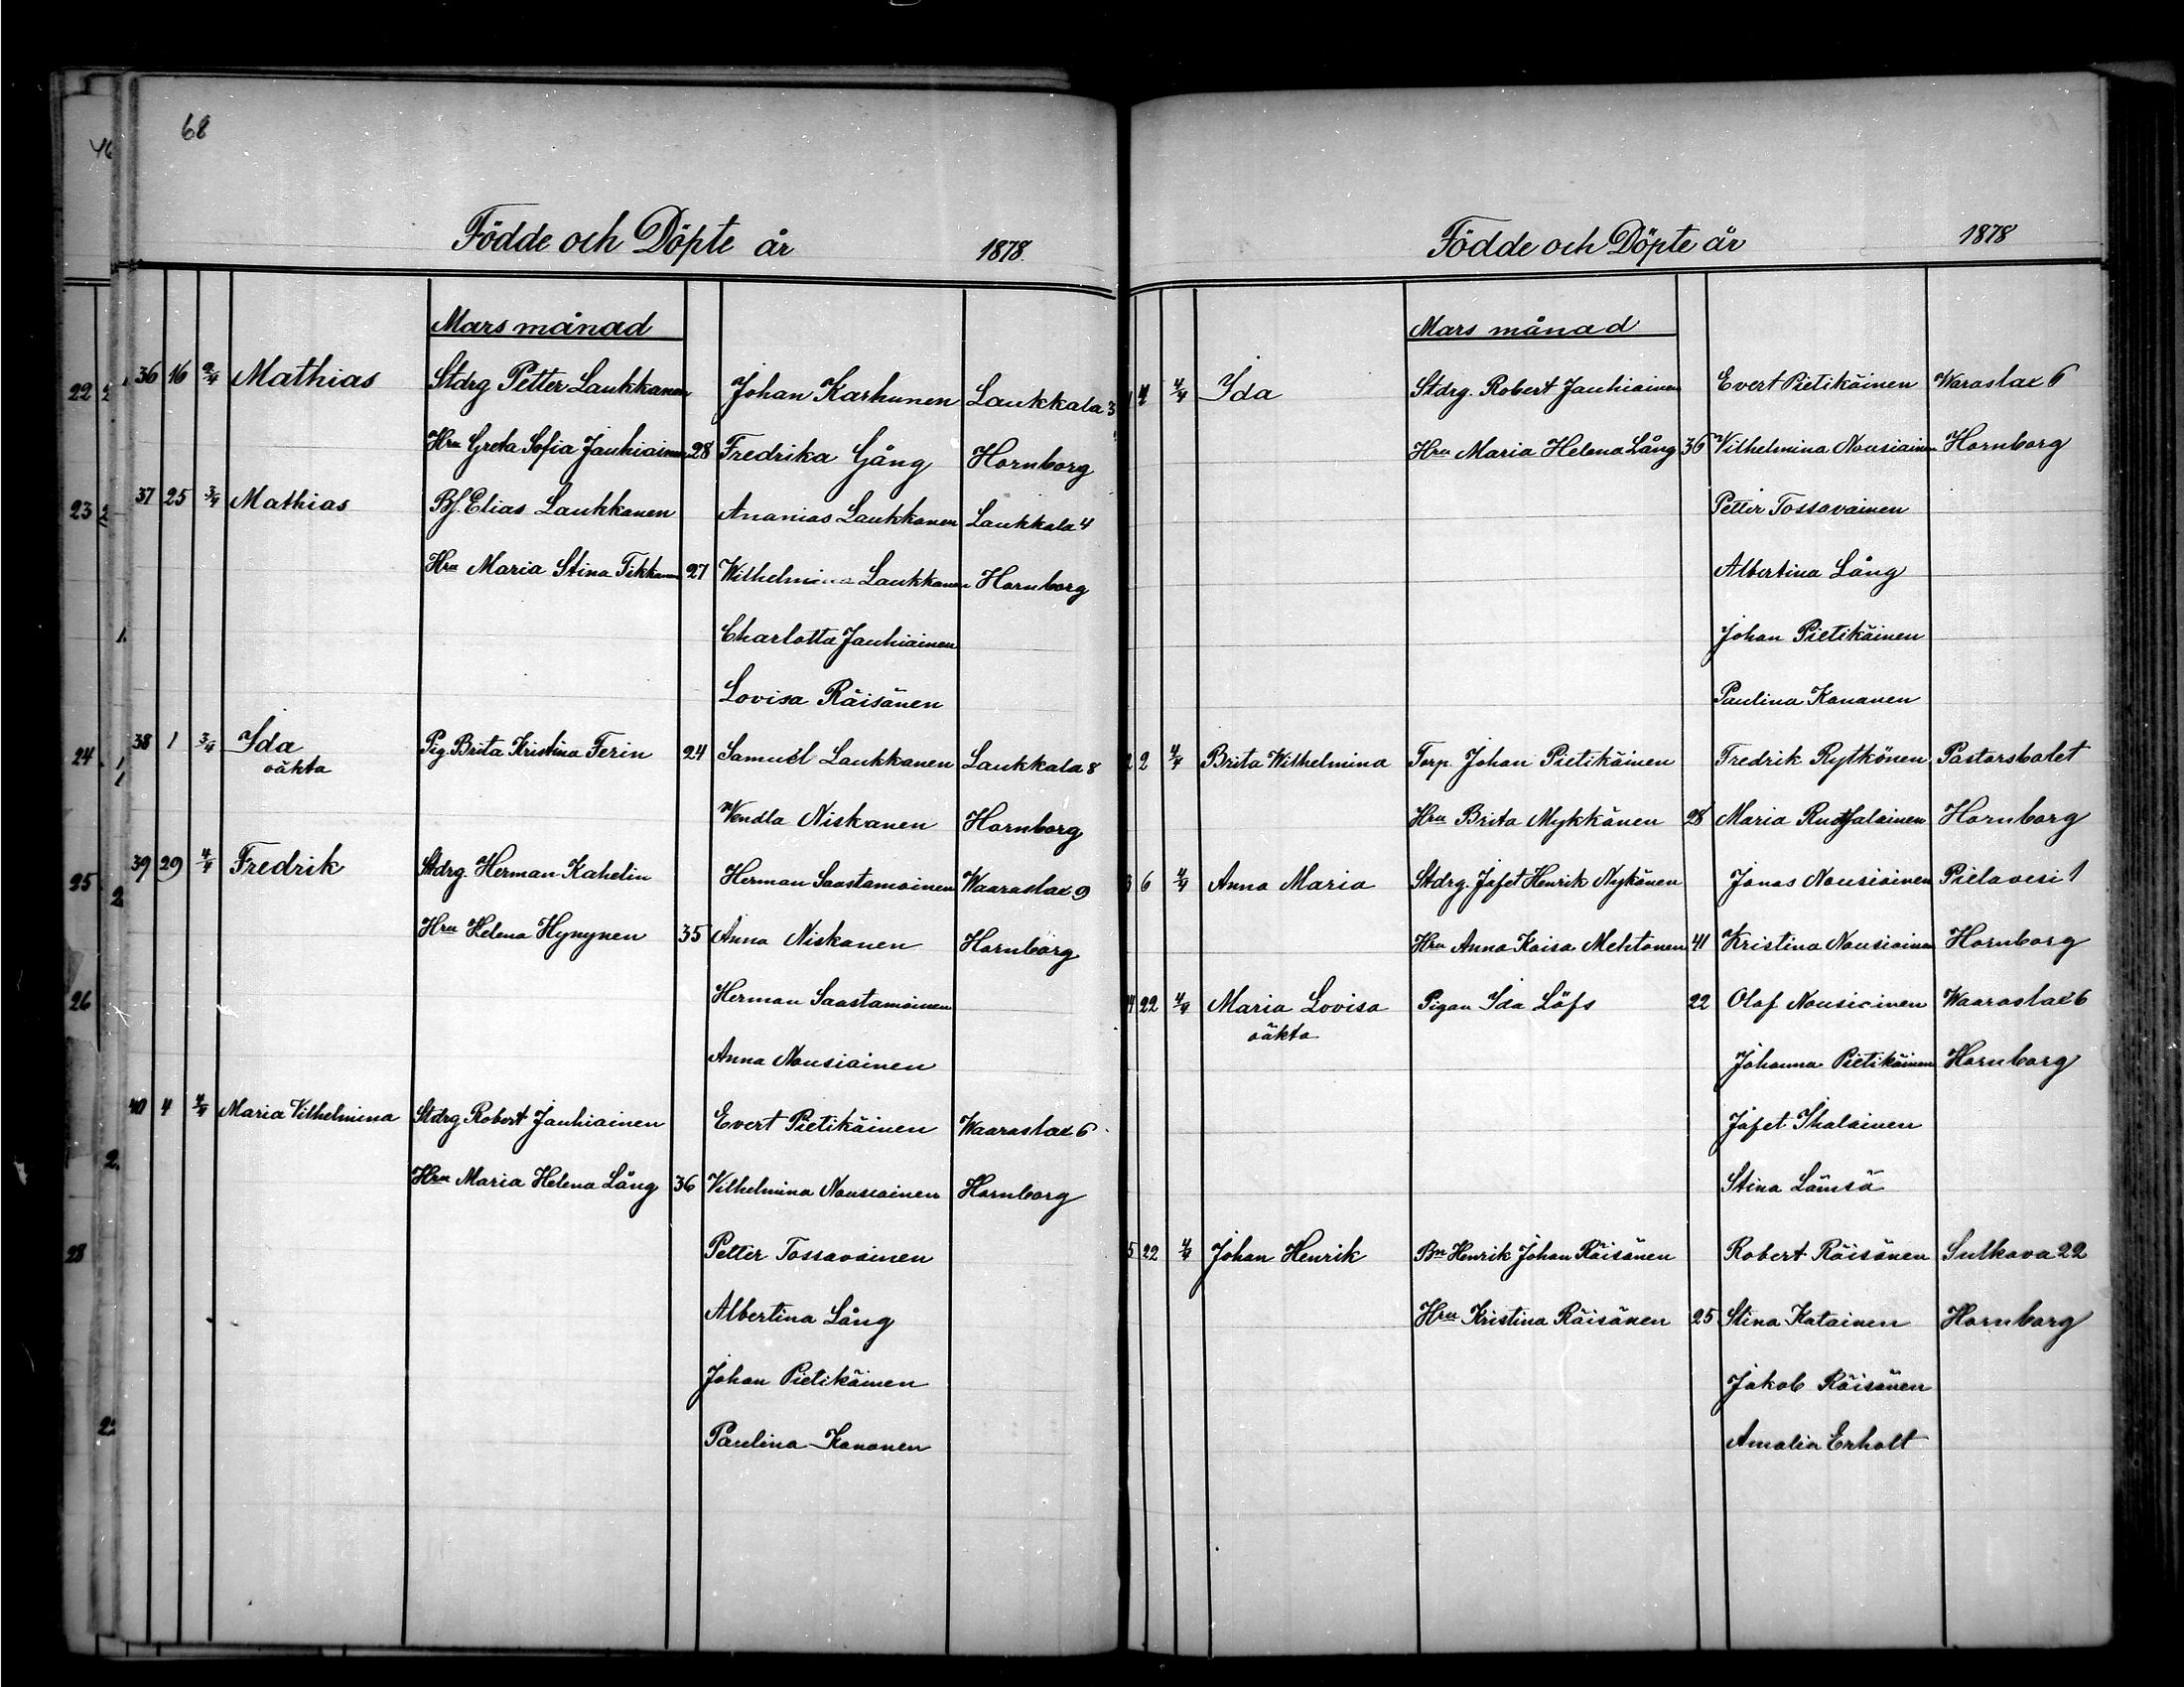 68
Födde och Döpte år 1878.
Mars månad
36 16 2/4 Mathias Stdrg Petter Laukkanen Johan Karhunen Laukkala 3
Hru Greta Sofia Jauhiainen 28 Fredrika Gång Hornborg
37 25 3/4 Mathias Bf. Elias Laukkanen Ananias Laukkanen Laukkala 4
Hru Maria Stina Tikkanen 27 Wilhelmina Laukkanen Hornborg
Charlotta Jauhiainen
Lovisa Räisänen
38 1 3/4 Ida Pig. Brita Kristina Ferin 24 Samuel Laukkanen Laukkala 8
oäkta
Wendla Niskanen Hornborg
39 29 4/4 Fredrik Stdrg. Herman Kahelin Herman Saastamoinen Waaraslax 9
Hru Helena Hynynen 35 Anna Niskanen Hornborg
Herman Saastamoinen
Anna Nousiainen
40 4 4/4 Maria Vilhelmina Stdrg Robert Jauhiainen Evert Pietikäinen Waaraslax 6
Hru Maria Helena Lång 36 Vilhelmina Nousiainen Hornborg
Petter Tossavainen
Albertina Lång
Johan Pietikäinen
Paulina Kononen
Födde och Döpte år 1878
Mars månad
1 4 4/4 Ida Stdrg. Robert Jauhiainen Evert Pietikäinen Waraslax 6
Hru Maria Helena Lång 36 Vilhelmina Nousiainen Hornborg
Petter Tossavainen
Albertina Lång
Johan Pietikäinen
Paulina Kononen
2 2 4/4 Brita Wilhelmina Torp. Johan Pietikäinen Fredrik Rytkönen Pastorsbolet
Hru Brita Mykkänen 28 Maria Ruotsalainen Hornborg
3 6 4/4 Anna Maria Stdrg. Jafet Henrik Nykänen Jonas Nousiainen Pielavesi 1
Hru Anna Kaisa Mehtonen 41 Kristina Nousiainen Hornborg
4 22 4/4 Maria Lovisa Pigan Ida Löfs 22 Olof Nousiainen Waaraslax 6
oäkta
Johanna Pietikäinen Hornborg
Jafet Ihalainen
Stina Lämsä
5 22 4/4 Johan Henrik Bn Henrik Johan Räisänen Robert Räisänen Sulkava 22
Hru Kristina Räisänen 25 Stina Katainen Hornborg
Jakob Räisänen
Amalia Erholt